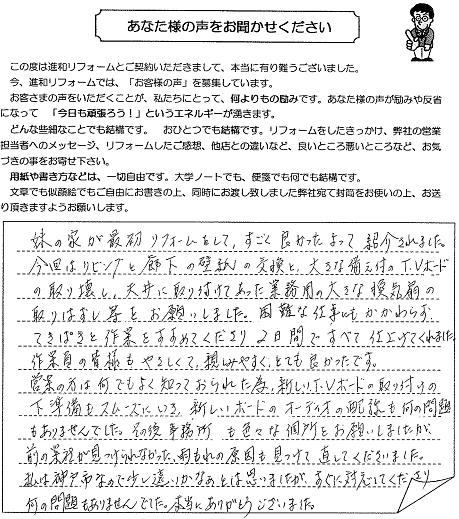 あなた様の声をお聞かせください
この度は進和リフォームとご契約いただきまして、本当に有り難うございました。
今、進和リフォームでは、「お客様の声」を募集しています。
お客さまの声をいただくことが、私たちにとって、何よりもの励みです。あなた様の声が励みや反省
になって 「今日も頑張ろう！」というエネルギーが湧きます。
どんな些細なことでも結構です。 おひとつでも結構です。リフォームをしたきっかけ、弊社の営業
担当者へのメッセージ、リフォームしたご感想、他店との違いなど、良いところ悪いところなど、お気
づきの事をお寄せ下さい。
用紙や書き方などは、一切自由です。大学ノートでも、便箋でも何でも結構です。
文章でも似顔絵でもご自由にお書きの上、同時にお渡し致しました弊社宛て封筒をお使いの上、お送
り頂きますようお願いします。
妹の家が最初リフォームをして、すごく良かったよって紹介されました。
今回はリビングと廊下の壁紙の交換と、大きな備え付のT.Vボード
の取り壊し、天井に取り付けてあった業務用の大きな換気扇の
取りはずし等をお願いしました。困難な仕事にもかかわらず、
てきぱきと作業をすすめてくださり2日間ですべて仕上げてくれました。
作業員の皆様もやさしくて、親しみやすく、とても良かったです。
営業の方は何でもよく知っておられた為、新しいT.Vボードの取り付けの
下準備もスムーズにいき、新しいボードのオーディオの配線も何の問題
もありませんでした。その後事務所も色々な個所をお願いしましたが、
前の業者が見つけられなかった雨もれの原因も見つけて直してくださいました。
私は神戸市なので少し遠いかなぁとは思いましたが、すぐに対応してくださり
何の問題もありませんでした。本当にありがとうございました。